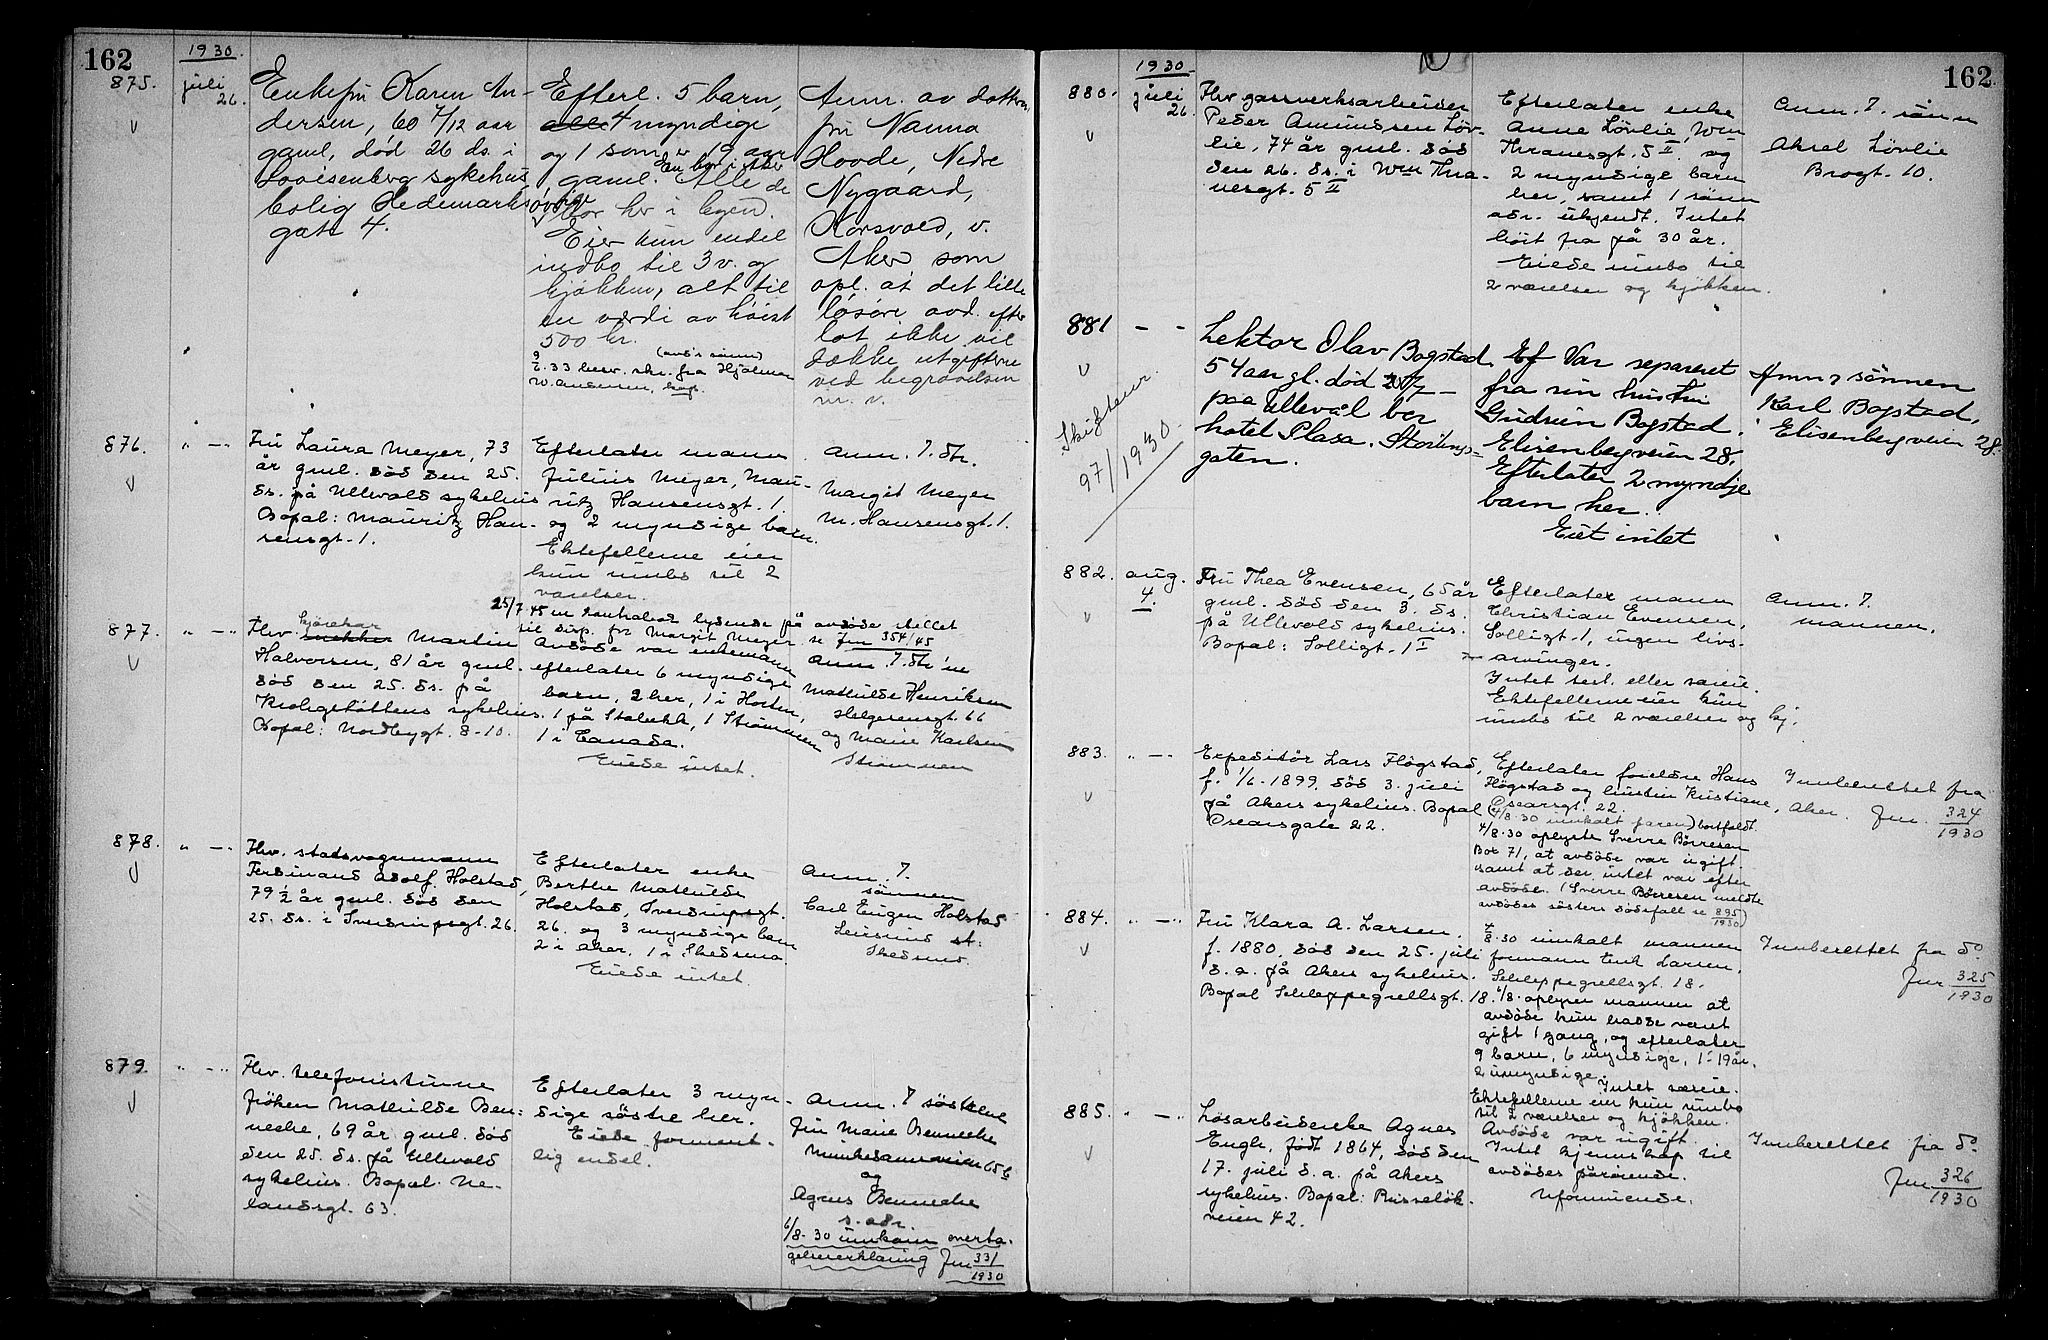 162
1930
875.
juli
26.
Enkefru Karen An-
dersen, 60 7/12 aar
gaml, død 26 ds. i
Lovisenberg sykehus
bolig Hedemarks-
gate 4.
Efterl. 5 barn,
alle 4 myndige
og 1 som er 19 aar
gaml. En bor i
Alle de
øvrige
bor her i byen.
Eier kun endel
indbo til 3 v. og
kjøkken, alt til
en værdi av høist
500 kr.
(avd's sønn)
9/2.33 besv. skr. fra Hjalmar
W. Andersen,
Anm. av datteren
fru Nanna
Hovde, Nedre
Nygaard,
Korsvold, v.
Aker som
opl. at det lille
løsøre avd. efter
lot ikke vil
dække utgiftene
ved begravelsen
m. v.
876.
" — "
Fru Laura Meyer, 73
år gml. død den 25.
ds. på Ullevold sykehus
Bopal: Mauritz Han-
sensgt. 1.
Efterlater mann
Julius Meyer, Mau-
ritz Hansensgt. 1.
og 2 myndige barn.
Ektefellerne eier
kun innbo til 2
værelser.
Anm. 7. dtr.
Margit Meyer
M. Hansensgt. 1.
25/7 45 en bankbok lydende på avdøde stillet
til disp. for Margit Meyer. se Jnr 354/45
877.
" — "
Fhv. snekker kjørekar Martin
Halvorsen, 81 år gml.
død den 25. ds. på
Prolegstøttens sykehus.
Bopal: Nordbygt. 8-10.
Avdøde var enkemann
efterlater 6 myndige
barn, 2 her, 1 i Horten,
1 på Stabekk, 1 Strømmen
1 i Canada.
Eiede intet.
Anm. 7. dtr'ne
Mathilde Henriksen
Helgesensgt. 66
og Marie Karlsen
Strømmen
878.
" — "
Fhv. stadsvognmann
Ferdinand Adolf Holstad,
79 1/2 år gml. død den
25. ds. i Sverdrupsgt. 26.
Efterlater enke
Berthe Mathilde
Holstad, Sverdrupsgt.
26. og 3 myndige barn
2 i Aker, 1 i Skedsmo
Eiede intet.
Anm. 7.
sønnen
Carl Eugen Holstad
Leirsund st.
Skedsmo.
879
" — "
Fhv. telefonistinne
frøken Mathilde Ben-
neche, 69 år gml. død
den 25. ds. på Ullevold
sykehus. Bopal. Ne-
landsgt. 63.
Efterlater 3 myn-
dige søstre her.
Eiede forment-
lig endel.
Anm. 7 søstrene
fru Marie Benneche
Munkedamsveien 65 b
og
Agnes Benneche
s. adr.
6/8-30 innkom overta-
gelseserklæring Jnr 331/1930
162
1930
880.
juli
26.
Fhv gassverksarbeider
Peder Amundsen Løv-
lie, 74 år gml. død
den 26. ds. i Wm Thra-
nesgt. 5 II
Efterlater enke
Anne Løvlie, Wm
Thranesgt. 5 II. og
2 myndige barn
her, samt 1 sønn
adr. ukjendt. Intet
hørt fra på 30 år.
Eiede innbo til
2 værelser og kjøkken.
Anm. 7. sønn
Aksel Løvlie
Brogt. 10.
881
— -
Skiftevr.
97/1930.
Lektor Olav Bogstad
54 aar gl. død 20/7 —
paa Ullevål bor
hotel Plasa. Stortings-
gaten.
Ef Var separert
fra sin hustru
Gudrun Bogstad.
Elisenbergveien 28.
Efterlater 2 myndje
barn her.
Eiet intet
Anm 7 sønnen
Karl Bogstad.
Elisenbergveien 28.
882.
aug.
4.
Fru Thea Evensen, 65 år
gml. død den 3. ds.
på Ullevold sykehus.
Bopal: Solligt. 1 I
Efterlater mann
Christian Evensen,
Solligt. 1, ingen livs-
arvinger.
Intet test. eller særeie.
Ektefellerne eier kun
innbo til 2 værelser og kj.
Anm. 7.
mannen.
883.
" — "
Expeditør Lars Høgstad,
f. 1/6-1899, død 3. juli
på Akers sykehus. Bopal
Oscarsgate 22.
Efterlater foreldre Hans
Høgstad og hustru Kristiane,
Oscarsgt. 22.
(4/8.30 innkalt faren) bortfaldt.
4/8.30 oplyste Sverre Børresen
Box 71, at avdøde var ugift
samt at der intet var efter
avdøde. (Sverre Børresen meldte
avdødes søsters dødsfall se 895/1930)
Innberettet fra
Aker. Jnr. 324/1930
884.
" — "
Fru Klara A. Larsen.
f. 1880, død den 25. juli
d. a. på Akers sykehus.
Bopal Schleppegrellsgt. 18.
4/8.30 innkalt mannen
formann Enk Larsen,
Schleppegrellsgt. 18.
6/8. oplyser mannen at
avdøde kun hadde været
gift 1 gang, og efterlater
9 barn, 6 myndige, 1- 19 år.
2 umyndige. Intet særeie.
Ektefellerne eier kun innbo
til 2 værelser og kjøkken.
Innberettet fra do
Jnr 325/1930
885.
" — "
Løsarbeiderske Agnes
Engh, født 1864, død den
17. juli d. a. på Akers
sykehus. Bopal: Russeløk-
veien 42.
Avdøde var ugift.
Intet kjennskap til
avdødes pårørende.
Uformuende.
Innberettet fra do.
Jnr 326/1930